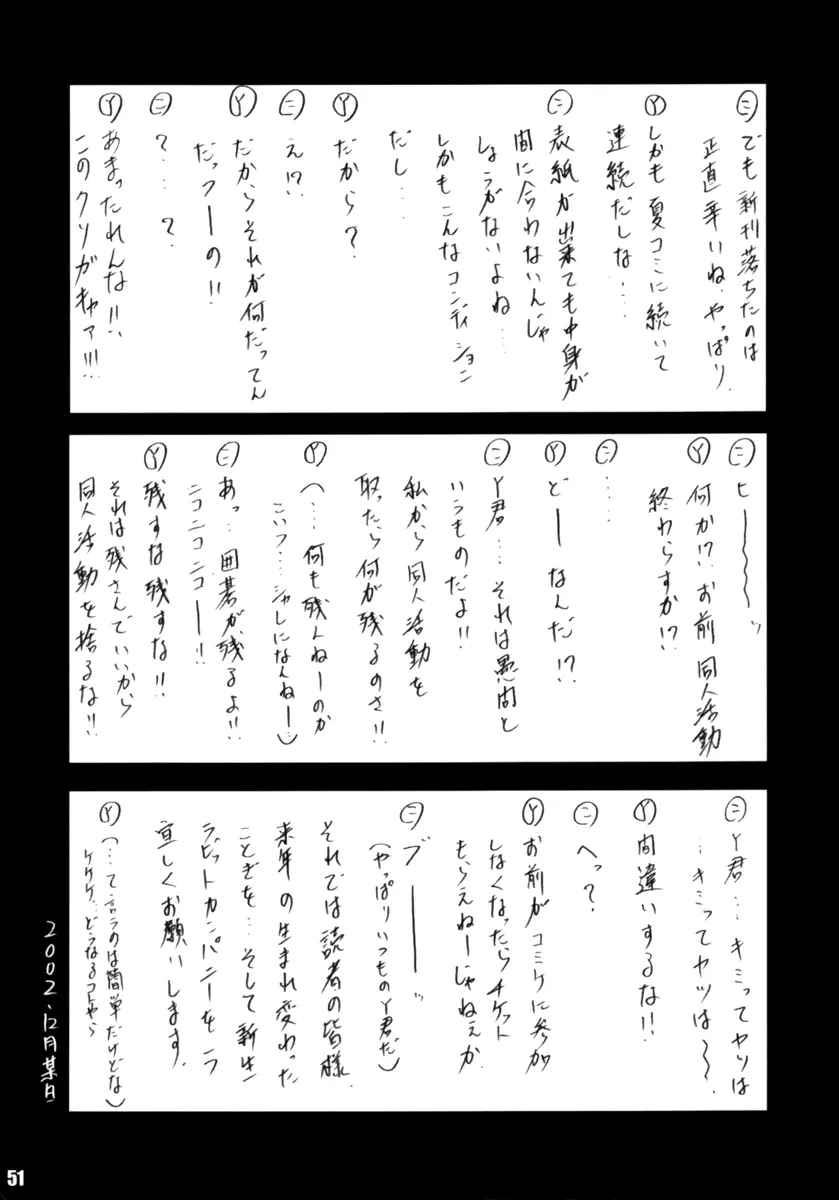 ㊁でも新刊落ちたのは
正直辛いね、やっぱり。
Ⓨしかも夏コミに続いて
連続だしな‥‥
㊁表紙が出来ても中身が
間に合わないんじゃ
しょうがないよね‥‥
しかもこんなコンディション
だし‥‥
Ⓨだから?
㊁え!?
Ⓨだからそれが何だってん
だっつーの!!
㊁?‥‥?
Ⓨあまったれんな!!
このクソガキャァ!!!
㊁ヒ――〜〜〜ッ
Ⓨ何か!?お前同人活動
終わらすか!?
㊁‥‥‥
Ⓨど――なんだ!?
㊁Y君‥‥それは愚問と
いうものだよ!!
私から同人活動を
取ったら何が残るのさ!!
Ⓨ(‥‥何も残んねーのか
こいつ‥‥シャレになんねー‥)
㊁あっ‥囲碁が残るよ!!
ニコニコニコ――!!
Ⓨ残すな残すな!!
それは残さんでいいから
同人活動を捨るな!!
㊁Y君‥‥キミってヤツは
‥‥キミってヤツは〜〜。
Ⓨ間違いするな!!
㊁へっ?
Ⓨお前がコミケに参加
しなくなったらチケット
もらえねーじゃねぇか
㊁ブ―――ッ
(やっぱりいつものY君だ)
それでは読者の皆様
来年の生まれ変わった
ことぶきを‥‥そして新生
ラビットカンパニーをう
宜しくお願いします。
Ⓨ(‥‥て言うのは簡単だけどな
ケケケ‥どうなるコトやら)
2002.12月某日
51